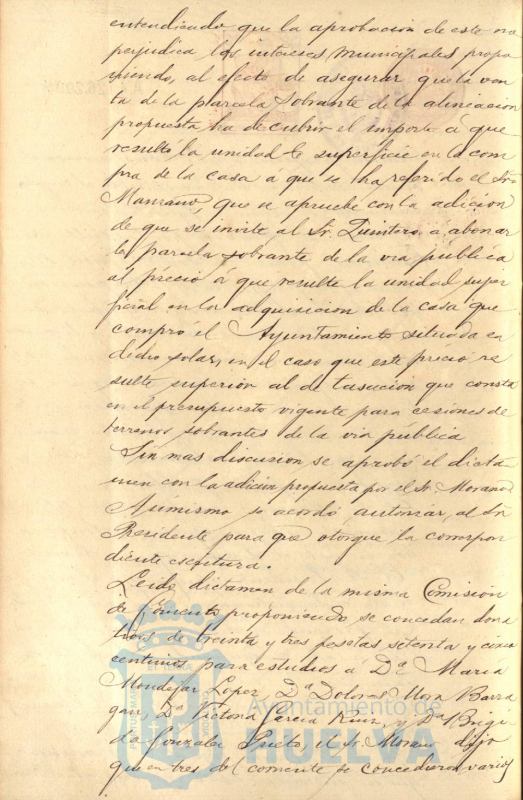 entendiendo que la aprobacion de este no
perjudica los intereses municipales propo
niendo, al efecto de asegurar que la ven
ta de la parcela sobrante de la alineacion
propuesta ha de cubrir el importe á que
resulto la unidad de superficie en la com
pra de la casa á que se ha referido el Sr.
Manzano, que se apruebe con la adicion
de que se invite al Sr. Quintero á abonar
la parcela sobrante de la via pública
al precio á que resulte la unidad super
ficial en la adquisicion de la casa que
compró el Ayuntamiento situada en
dicho solar, en el caso que este precio re
sulte superior al de tasacion que consta
en el presupuesto vigente para cesiones de
terrenos sobrantes de la via pública
Sin mas discusion se aprobó el dictá
men con la adicion propuesta por el Sr. Morano
Asimismo se acordó autorizar al Sr.
Presidente para que otorgue la correspon
diente escritura.
Leido dictamen de la misma Comisión
de Fomento proponiendo se concedan dona
tivos de treinta y tres pesetas setenta y cinco
centimos para estudios a Dª María
Mondejar Lopez, Dª Dolores Mora Barra
gan, Dª Victoria Garcia Ruiz, y Dª Brigi
da Gonzalez Prieto, el Sr. Morano dijo
que en tres del corriente se concedieron varios
Ayuntamiento de
HUELVA